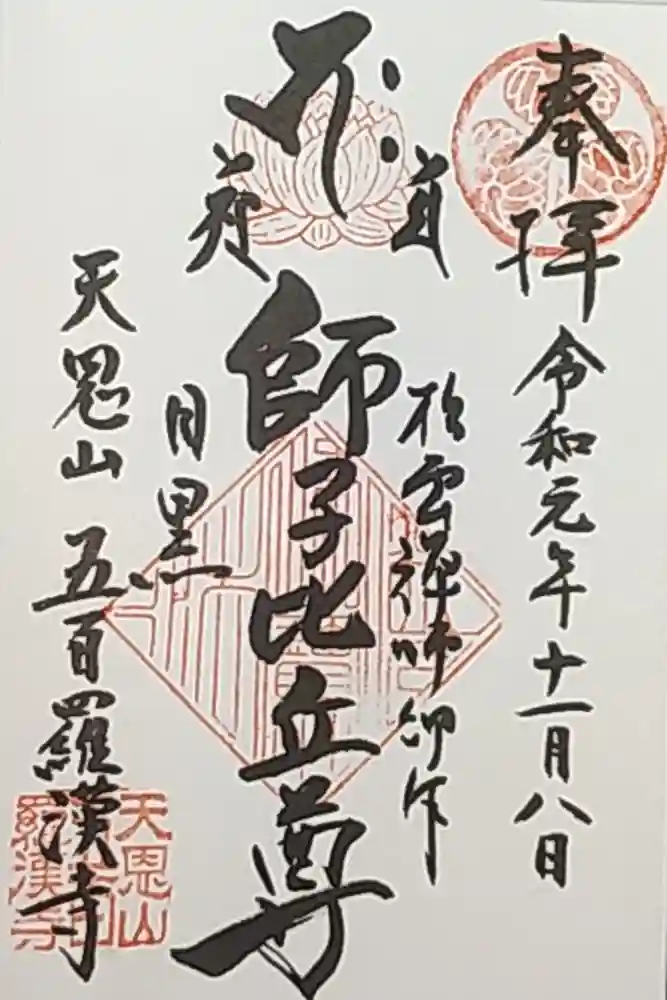 奉拝
令和元年十一月八日
松雲禅師御作
師子比丘尊
目黒
天恩山 五百羅漢寺
天恩山
羅漢寺